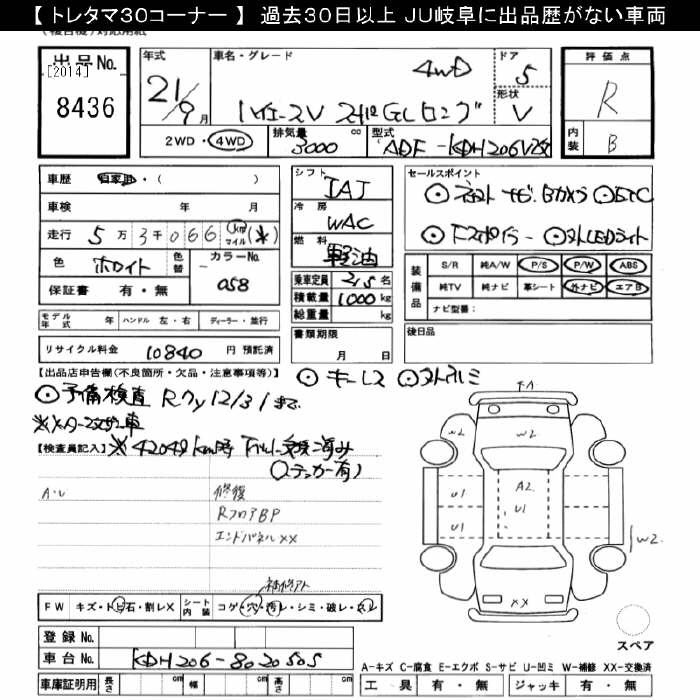 【 トレタマ30コーナー 】 過去30日以上 JU岐阜に出品歴がない車両
出品No. [2014] 8436
年式 21/9月
車名・グレード 4WD
ハイエースV スーパーGLロング
ドア 5
形状 V
評価点 R
内装 B
2WD・4WD 排気量 3000 cc 型式 ADF-KDH206V改
車歴 自家用・( )
車検 年 月
走行 5万3千066 km マイル (※)
色 ホワイト 色替 カラーNo. 058
保証書 有・無
モデル年式 年 ハンドル 左・右 ディーラー・並行
リサイクル料金 10840 円 預託済
シフト IAT
冷房 WAC
燃料 軽油
乗車定員 2/5 名
積載量 1000 kg
総重量 kg
書類期限 月 日
セールスポイント
ナビ. Bカメラ ◎ETC
◎ドアスポイラー ◎LEDライト
装備品 S/R 純A/W P/S P/W ABS
純TV 純ナビ 革シート 外ナビ エアB
ナビ型番:
後日品
【出品店申告欄(不良箇所・欠品・注意事項等)】 ◎キーレス ◎アルミ
◎予備検査 Rカ 12/31まで
※メーター交換車
【検査員記入】 ※42049km時 メーター交換済み
(ステッカー有)
A・U 修復
RフロアBP
エンドパネルXX
補修アト
FW キズ・トビ石・割レX シート内装 コゲ・穴・汚レ・シミ・破レ・スレ
登録 No.
車台 No. KDH206-8020505
車庫証明用 長さ cm 幅 cm 高さ cm
W2
U1 A2 U1
U1 W2
XX
スペア
A-キズ C-腐食 E-エクボ S-サビ U-凹ミ W-補修 XX-交換済
工具 有・無 ジャッキ 有・無